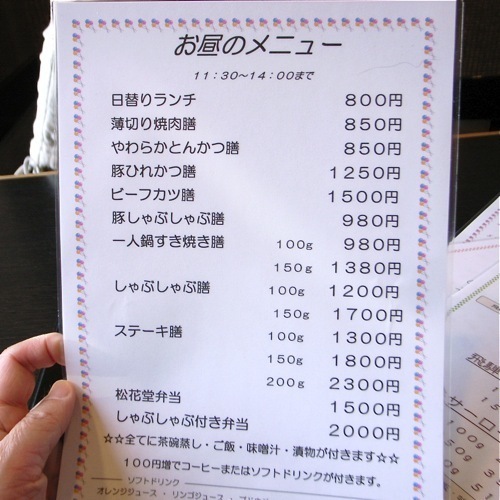 お昼のメニュー
11:30～14:00まで
日替りランチ 800円
薄切り焼肉膳 850円
やわらかとんかつ膳 850円
豚ひれかつ膳 1250円
ビーフカツ膳 1500円
豚しゃぶしゃぶ膳 980円
一人鍋すき焼き膳 100g 980円
150g 1380円
しゃぶしゃぶ膳 100g 1200円
150g 1700円
ステーキ膳 100g 1300円
150g 1800円
200g 2300円
松花堂弁当 1500円
しゃぶしゃぶ付き弁当 2000円
☆☆全てに茶碗蒸し・ご飯・味噌汁・漬物が付きます☆☆
100円増でコーヒーまたはソフトドリンクが付きます。
ソフトドリンク
オレンジジュース・リンゴジュース・
飛騨
サーロ
100g
150g